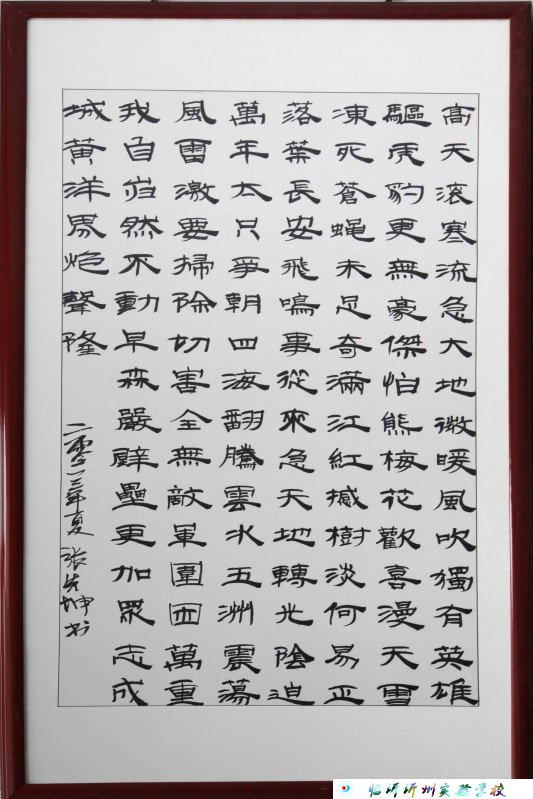 高天滚寒流急大地微暖風吹獨有英雄
驅虎豹更無豪傑怕熊梅花歡喜漫天雪
凍死蒼蝇未足奇滿江紅撼樹淡何易正
落葉長安飛鳴事從來急天地轉光陰迫
萬年太只爭朝四海翻騰雲水五洲震蕩
風雷激要掃除切害全無敵軍圍困萬重
我自岿然不動早森嚴壁壘更加眾志成
城黄洋界炮聲隆
二零一三年夏 张先坤书
临沂沂州实验学校